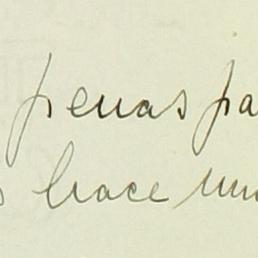 penas pa
s hace un